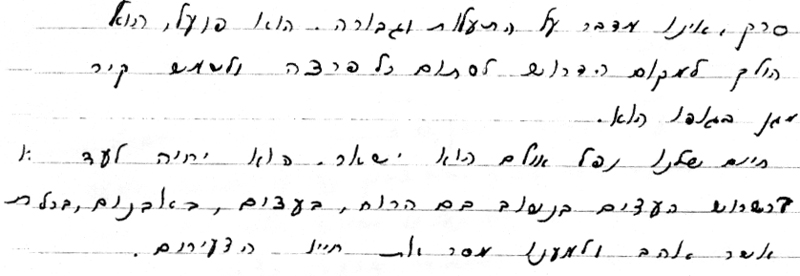 סרק, אינו מדבר על התעלות וגבורה. הוא פועל, הוא
הולך למקום הדרוש לסתום כל פרצה ולשמש קיר
מגן בגופו הוא.
חיים שלנו נפל אולם הוא ישאר. הוא יחיה לעד
ברשרוש העצים בנשוב בם הרוח, בעצים, באבנים, בכל
אשר אהב ולמענו מסר את חייו הצעירים.